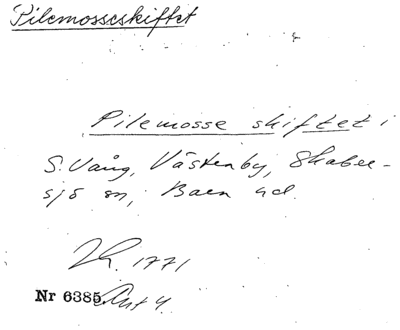 Pilemosseskiftet
Pilemosse skiftet i
S. Vång, Västenby, Skaber-
sjö sn, Bara hd.
Lk. 1771
Nr 6385. Akt 4.